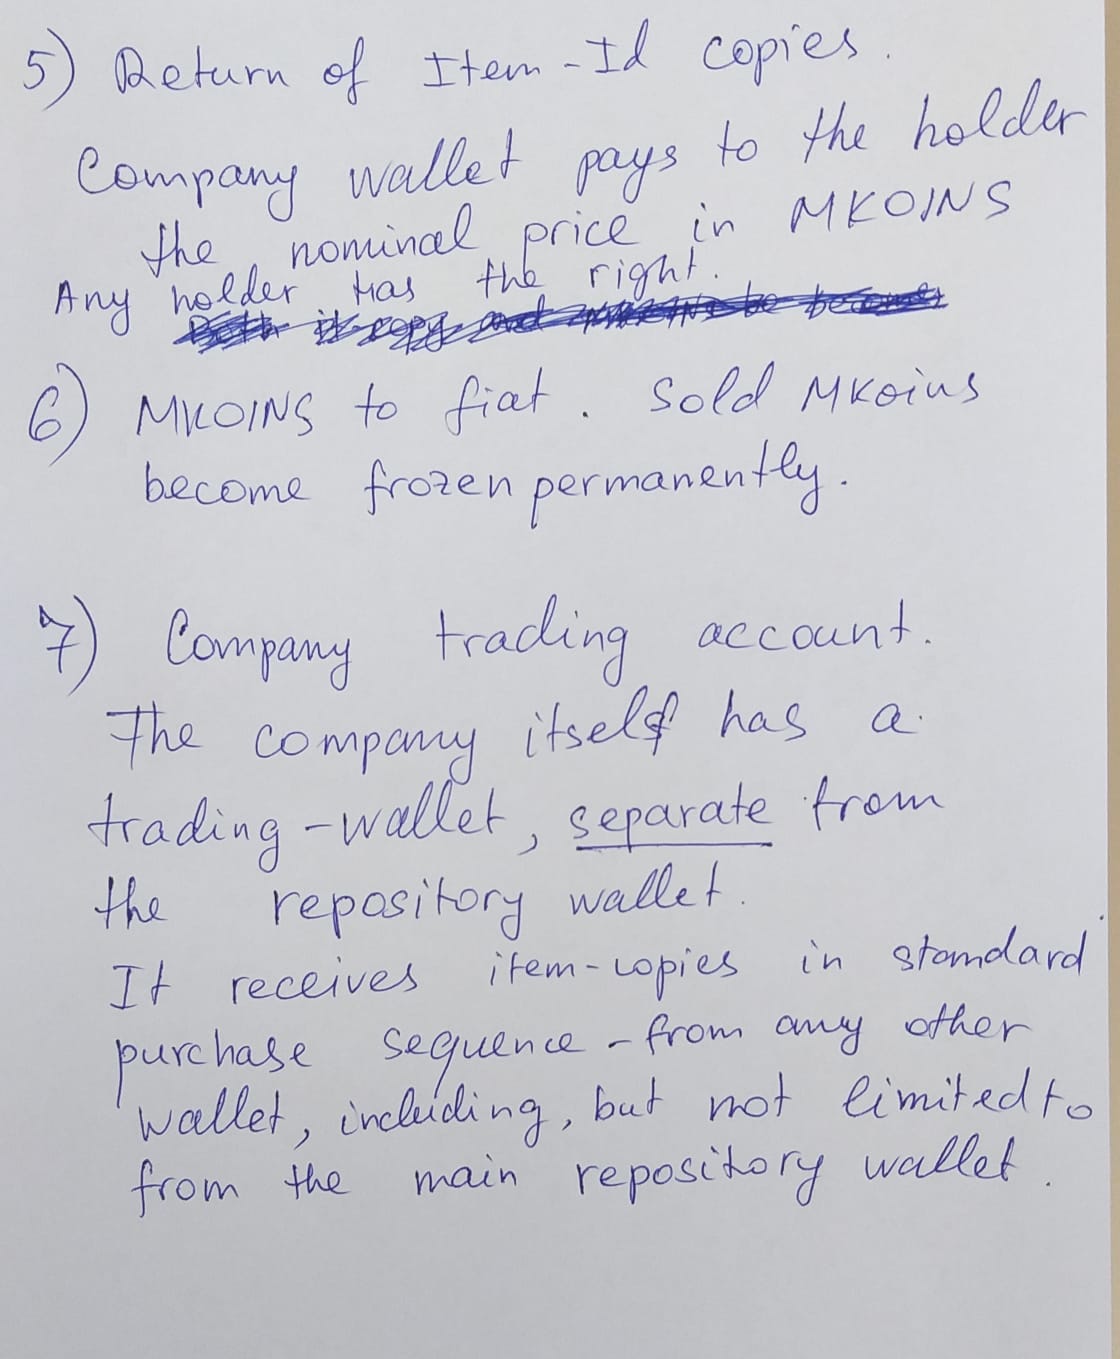 5) Return of Item-Id copies.
Company wallet pays to the holder
the nominal price in MKOINS
Any holder has the right.
6) MKOINS to fiat. Sold MKoins
become frozen permanently.
7) Company trading account.
The company itself has a
trading-wallet, separate from
the repository wallet.
It receives item-copies in standard
purchase sequence - from any other
wallet, including, but not limited to
from the main repository wallet.